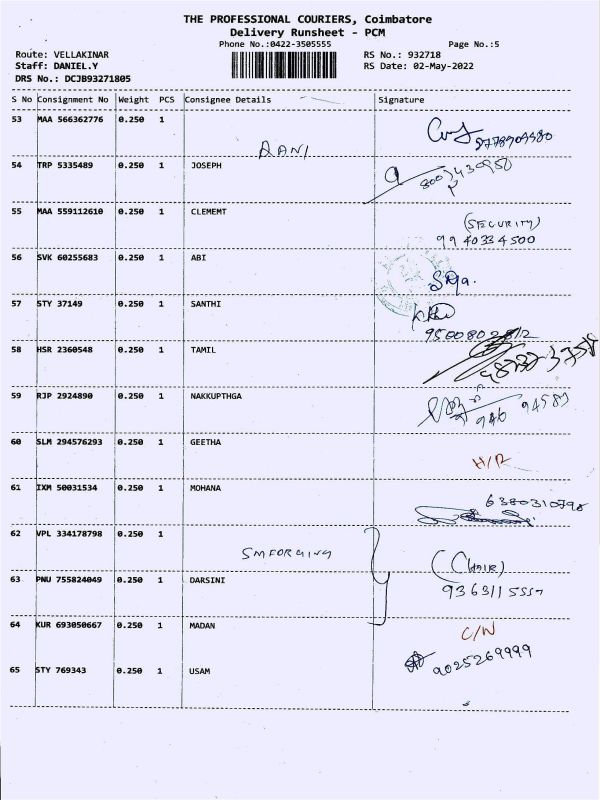 THE PROFESSIONAL COURIERS, Coimbatore
Delivery Runsheet - PCM
Phone No.:0422-3505555 Page No.:5
Route: VELLAKINAR RS No.: 932718
Staff: DANIEL.Y RS Date: 02-May-2022
DRS No.: DCJB93271805
S No Consignment No Weight PCS Consignee Details Signature
53 MAA 566362776 0.250 1
RANI
54 TRP 5335489 0.250 1 JOSEPH
55 MAA 559112610 0.250 1 CLEMEMT
(SECURITY)
9940334500
56 SVK 60255683 0.250 1 ABI
57 STY 37149 0.250 1 SANTHI
58 HSR 2360548 0.250 1 TAMIL
59 RJP 2924890 0.250 1 NAKKUPTHGA
60 SLM 294576293 0.250 1 GEETHA
H/R
61 IXM 50031534 0.250 1 MOHANA
6380310798
62 VPL 334178798 0.250 1
SMFORGING
63 PNU 755824049 0.250 1 DARSINI
64 KUR 693050667 0.250 1 MADAN
C/N
9025269999
65 STY 769343 0.250 1 USAM